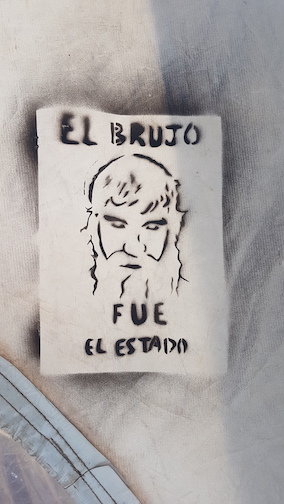 EL BRUJO
FUE
EL ESTADO